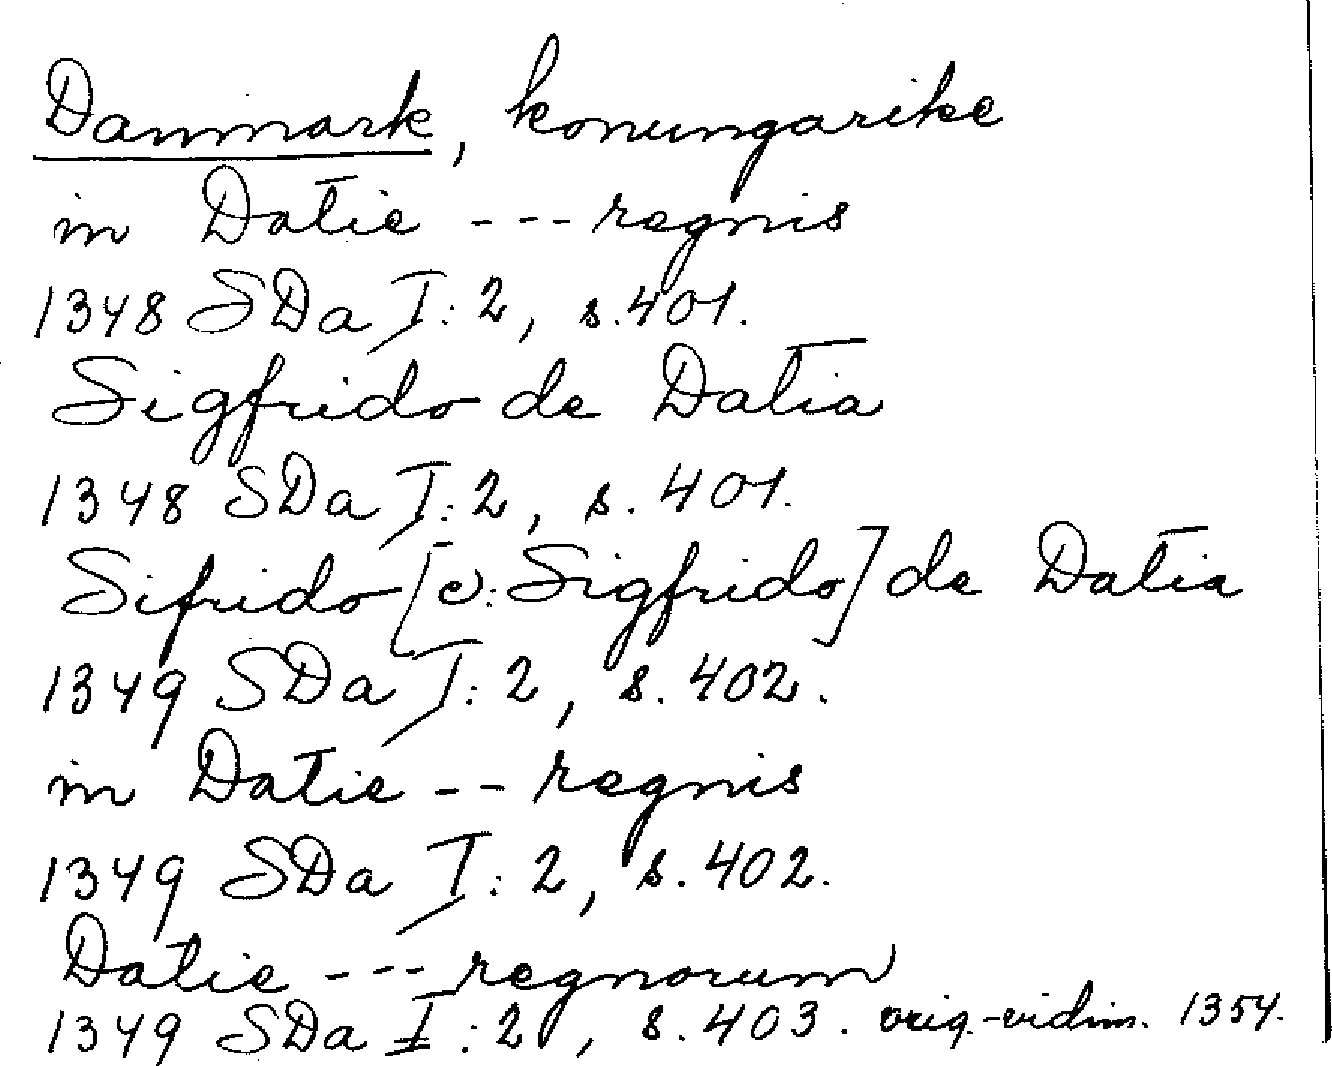 Danmark, konungarike
in Datie --- regnis
1348 SDa I:2, s.401.
Sigfrido de Datia
1348 SDa I:2, s. 401.
Sifrido [o: Sigfrido] de Datia
1349 SDa I:2, s. 402.
in Datie -- regnis
1349 SDa I:2, s. 402.
Datie --- regnorum
1349 SDa I:2, s. 403. orig.-vidim. 1354.